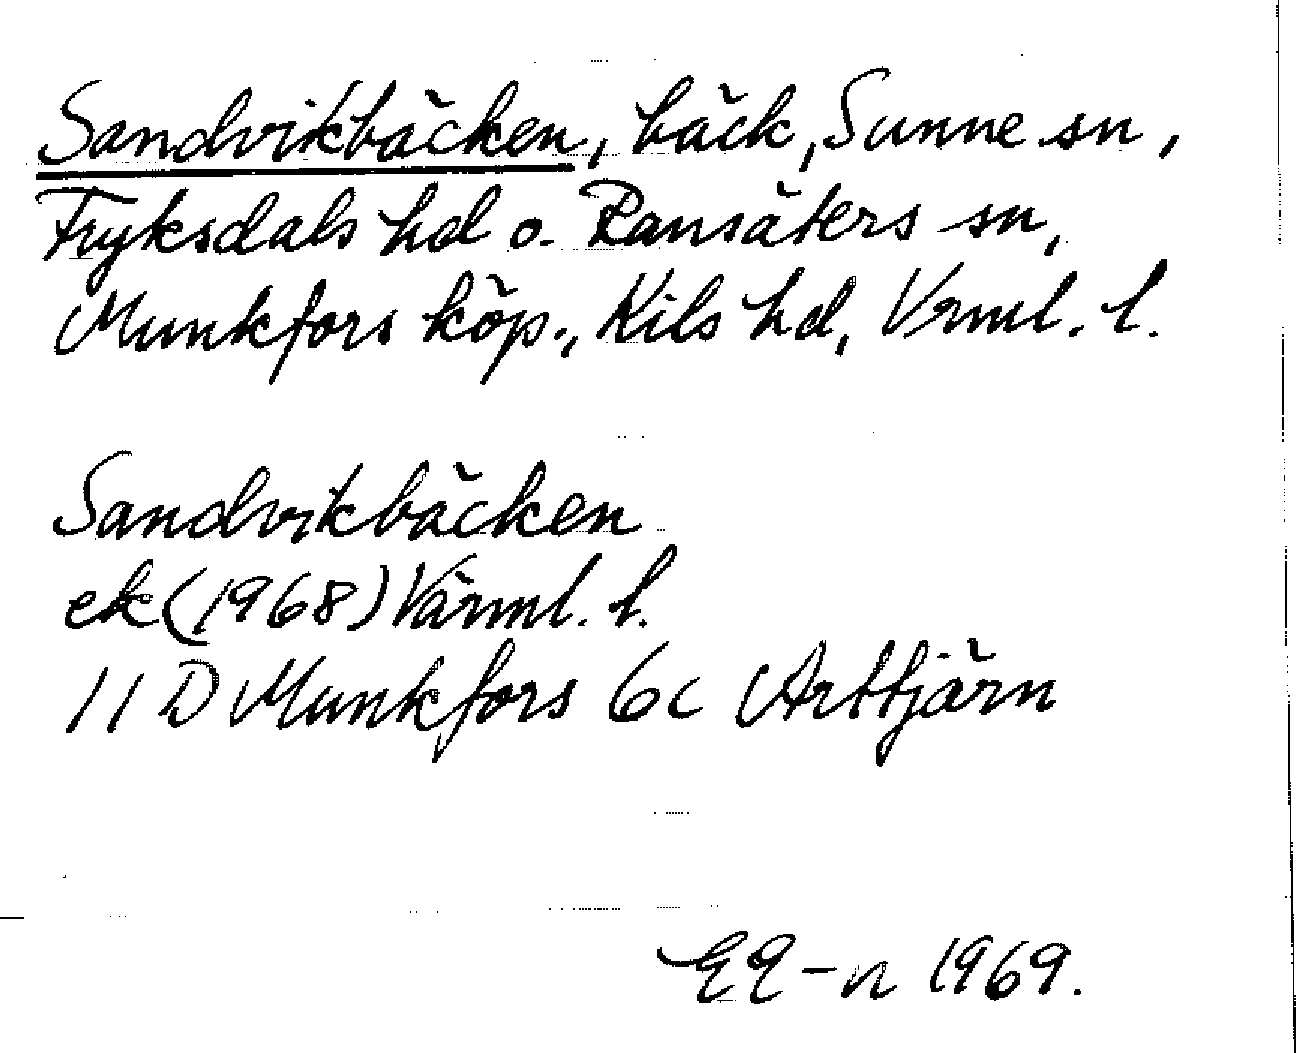 Sandvikbäcken, bäck, Sunne sn,
Fryksdals hd o. Ransäters sn,
Munkfors köp., Kils hd, Vrml. l.
Sandvikbäcken
ek (1968) Värml. l.
11 D Munkfors 6c Arttjärn
EE-n 1969.